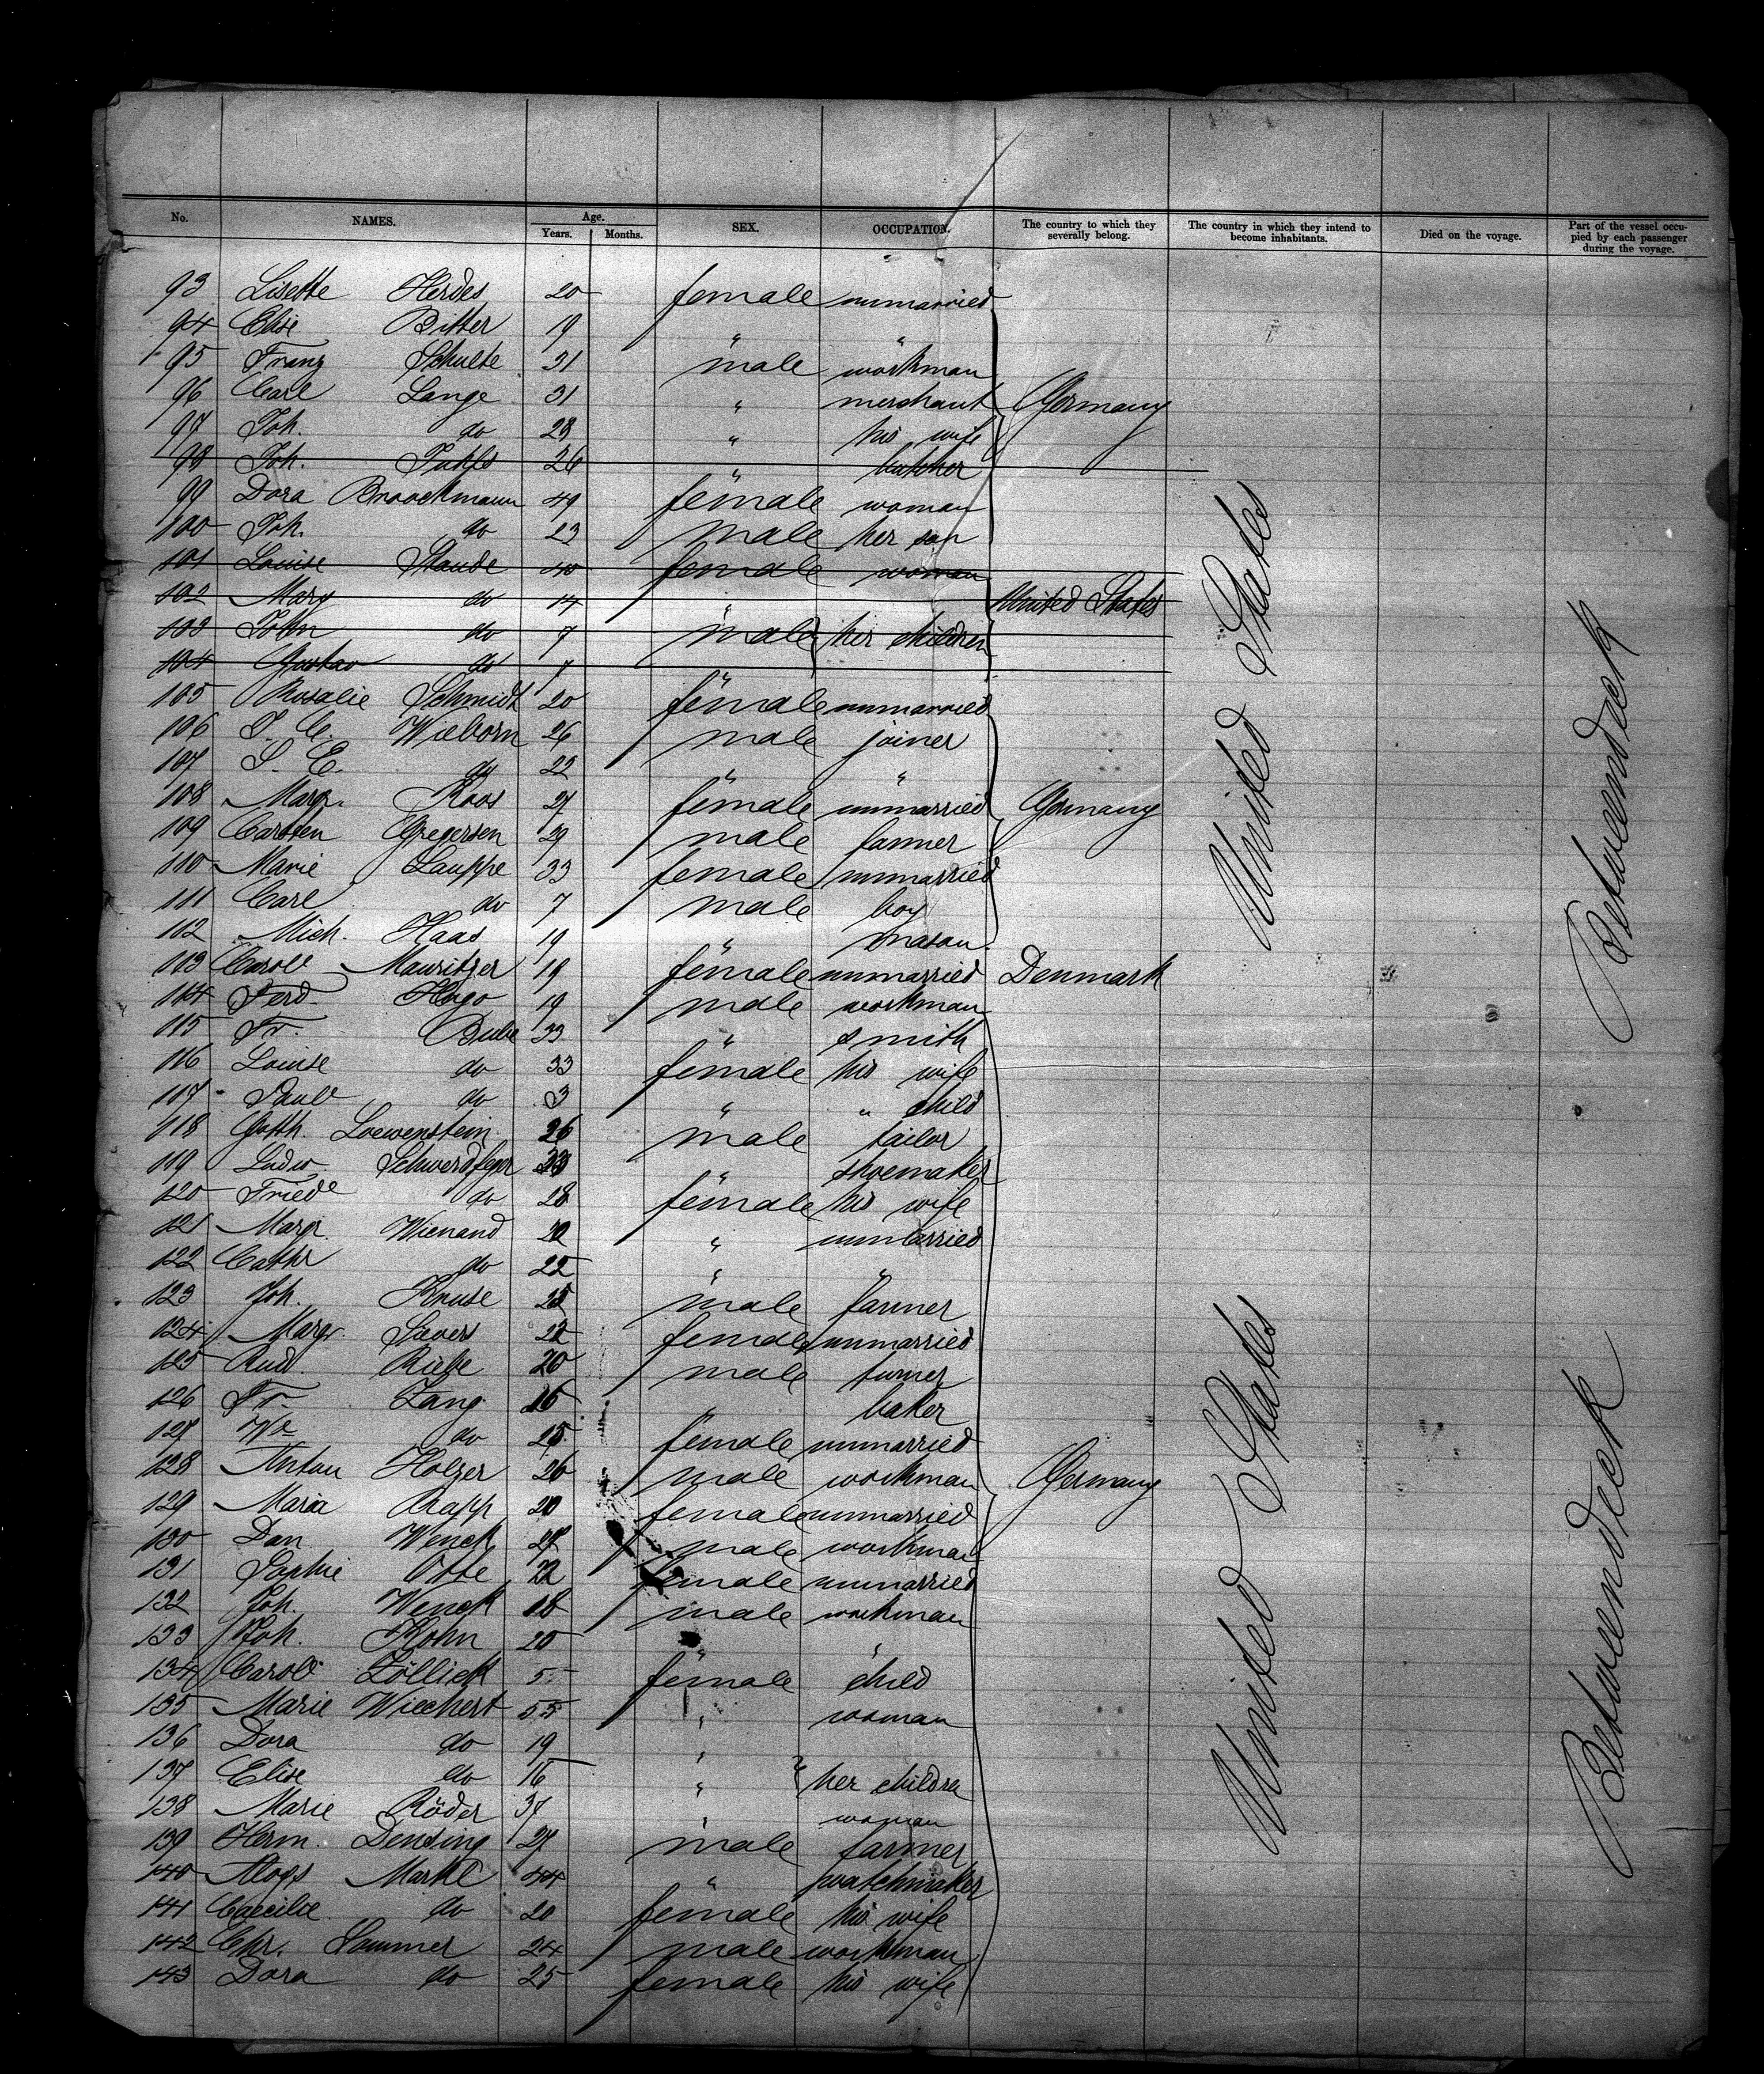 No. NAMES. Age. Years. Months. SEX. OCCUPATION. The country to which they severally belong. The country in which they intend to become inhabitants. Died on the voyage. Part of the vessel occupied by each passenger during the voyage.
93 Lisette Herdes 20 female unmarried
94 Elise Bitter 19 " "
95 Franz Schulte 31 male workman
96 Carl Lange 31 " merchant Germany
97 Joh. do 28 " his wife
98 Joh. 26 " butcher
99 Dora Broockmann 49 female woman
100 Joh. do 23 male her son
101 Louise Staude 40 female woman
102 Mary do 14 " United States
103 John do 7 male her children
104 Gustav do "
105 Rosalie Schmidt 20 female unmarried
106 Wieborn 26 male joiner
107 do 22 " "
108 Marg. Roos 27 female unmarried Germany
109 Carsten Gregersen 29 male farmer
110 Marie Lauppe 33 female unmarried
111 Carl do 7 male boy
112 Mich. Haas 19 " mason
113 Carol Mauritzer 19 female unmarried Denmark
114 Ferd. Hugo 19 male workman
115 Fr. Bube 33 " smith
116 Louise do 33 female his wife
117 Paul do 3 " " child
118 Gotth. Loewenstein 26 male tailor
119 Ludw. Schwerdfeger 33 " shoemaker
120 Fried do 28 female his wife
121 Margr. Wienand 22 " unmarried
122 Cathr do 22 " "
123 Joh. Kruse 25 male farmer
124 Margr. Sievers 22 female unmarried
125 Rud. 20 male turner
126 Fr. Lang 16 " baker
127 do 25 female unmarried
128 Anton Holzer 26 male workman Germany
129 Maria Rapp 20 female unmarried
130 Dan Wenck 27 male workman
131 Sophie Otte 22 female unmarried
132 Joh. Wenck 18 male workman
133 Joh. Kohn 20 " "
134 Carol Zöllick 5 female child
135 Marie Wiechert 55 " woman
136 Dora do 19 "
137 Elise do 16 " her childre
138 Marie Röder 37 " woman
139 Herm. Densing 27 male farmer
140 Aloys Markl 44 " watchmaker
141 Caecilie do 20 female his wife
142 Chr. Sommer 24 male workman
143 Dora do 25 female his wife
United States
Betweendeck
United States
Betweendeck